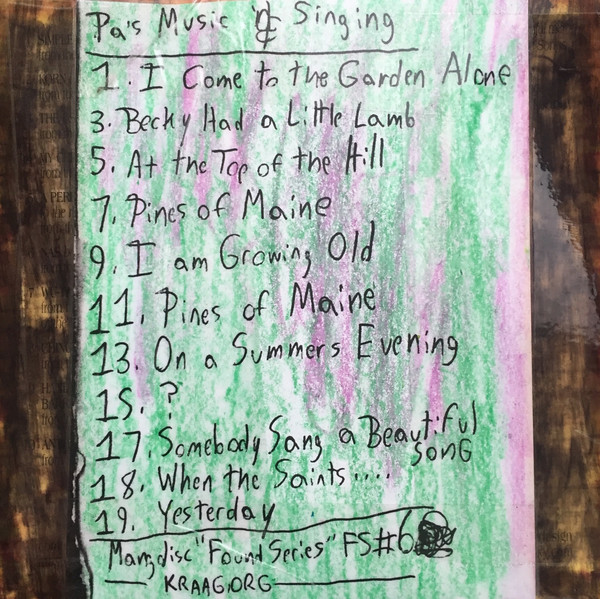 Pa's Music & Singing
1. I Come to the Garden Alone
3. Becky Had a Little Lamb
5. At the Top of the Hill
7. Pines of Maine
9. I am Growing Old
11. Pines of Maine
13. On a Summers Evening
15. ?
17. Somebody Sang a Beautiful
SONG
18. When the Saints....
19. Yesterday
Marzdisc "Found Series" FS#6
KRAAG.ORG